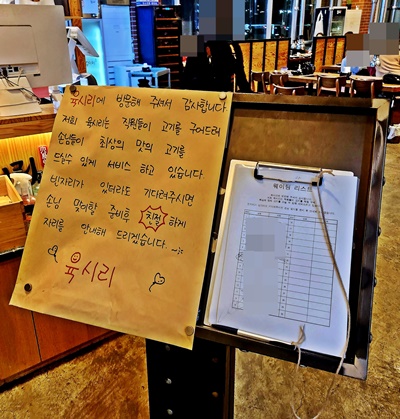 육시리에 방문해 주셔서 감사합니다
저희 육시리는 직원들이 고기를 구어드려
손님들이 최상의 맛의 고기를
드실수 있게 서비스 하고 있습니다.
빈자리가 있더라도 기다려주시면
손님 맞이할 준비후 친절하게
자리를 안내해 드리겠습니다.
육시리
웨이팅 리스트